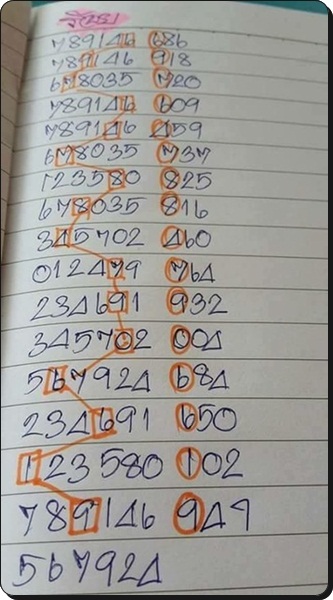 789146 686
789146 918
678035 720
789146 609
789146 459
678035 737
123580 825
678035 816
345702 460
012479 764
234691 932
345702 004
567924 684
234691 650
123580 102
789146 949
567924